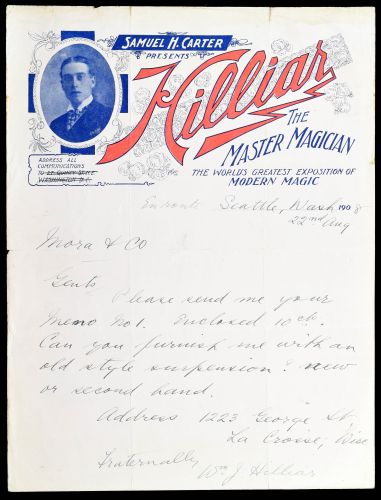 SAMUEL H. CARTER
PRESENTS
Hilliar
THE
MASTER MAGICIAN
THE WORLD'S GREATEST EXPOSITION OF
MODERN MAGIC
ADDRESS ALL
COMMUNICATIONS
TO
WASHINGTON D.C.
Enroute Seattle, Wash 1908
22nd Aug
Mora & Co
Gents
Please send me your
Memo No 1. Enclosed 10cts.
Can you furnish me with an
old style suspension? new
or second hand.
Address 1223 George St
La Crosse, Wisc
Fraternally
Wm J Hilliar